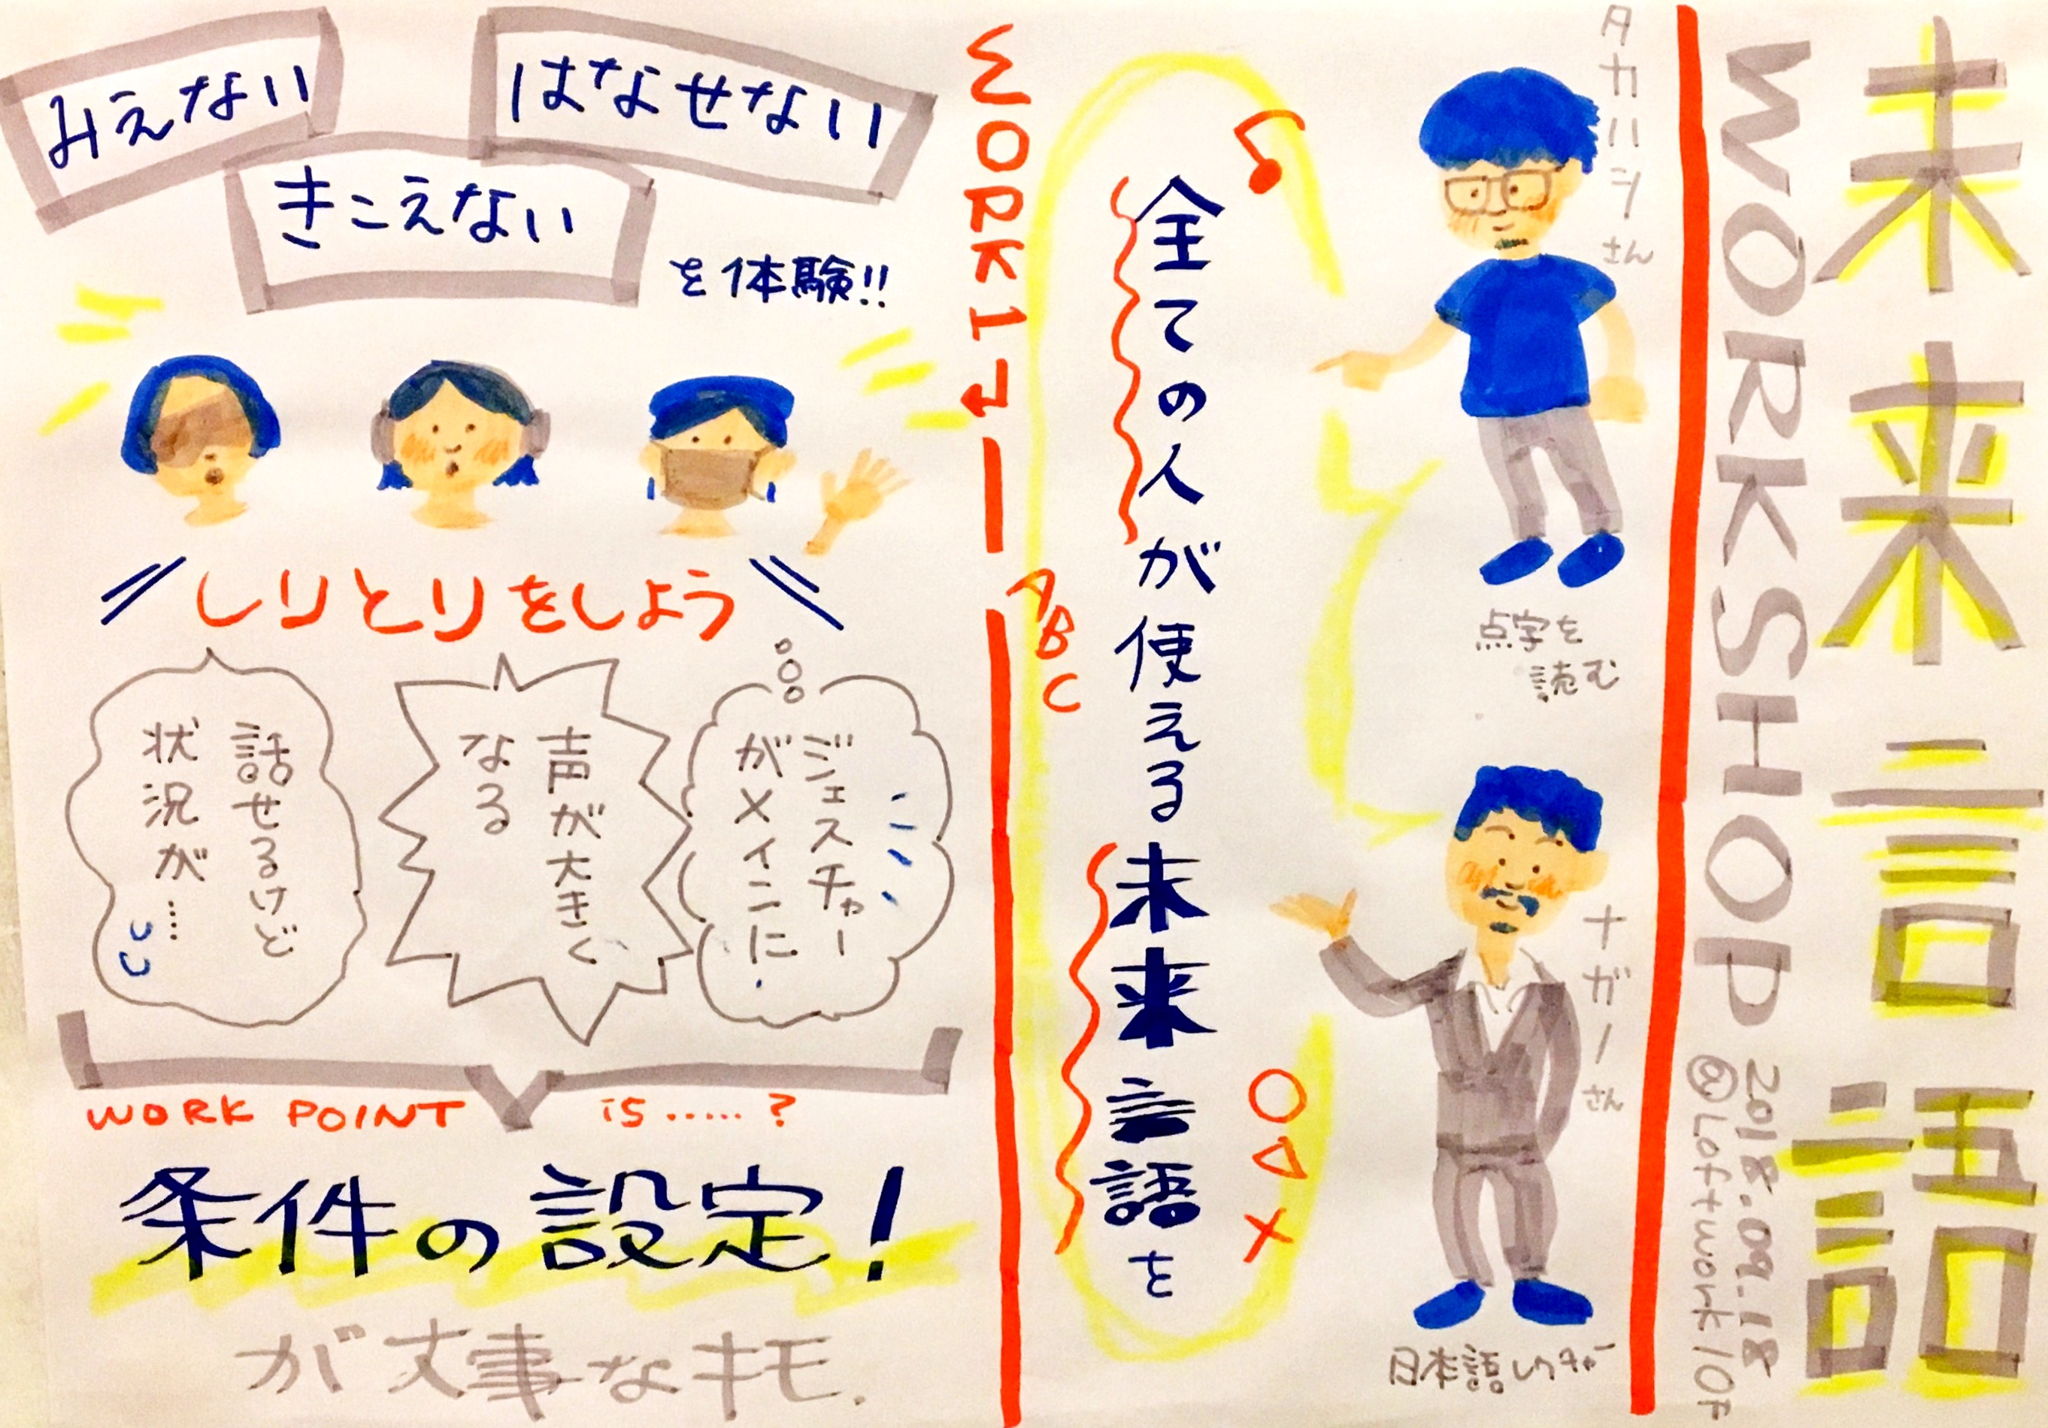 未来言語
WORKSHOP
2018.09.18
@Loftwork10F
タカハシさん
点字を
読む
ナガノさん
日本語レクチャー
全ての人が使える未来言語を
ABC
WORK1
みえない
はなせない
きこえない
を体験!!
しりとりをしよう
ジェスチャー
がメインに
声が大きく
なる
話せるけど
状況が…
WORK POINT is.....?
条件の設定!
が大事なキモ.